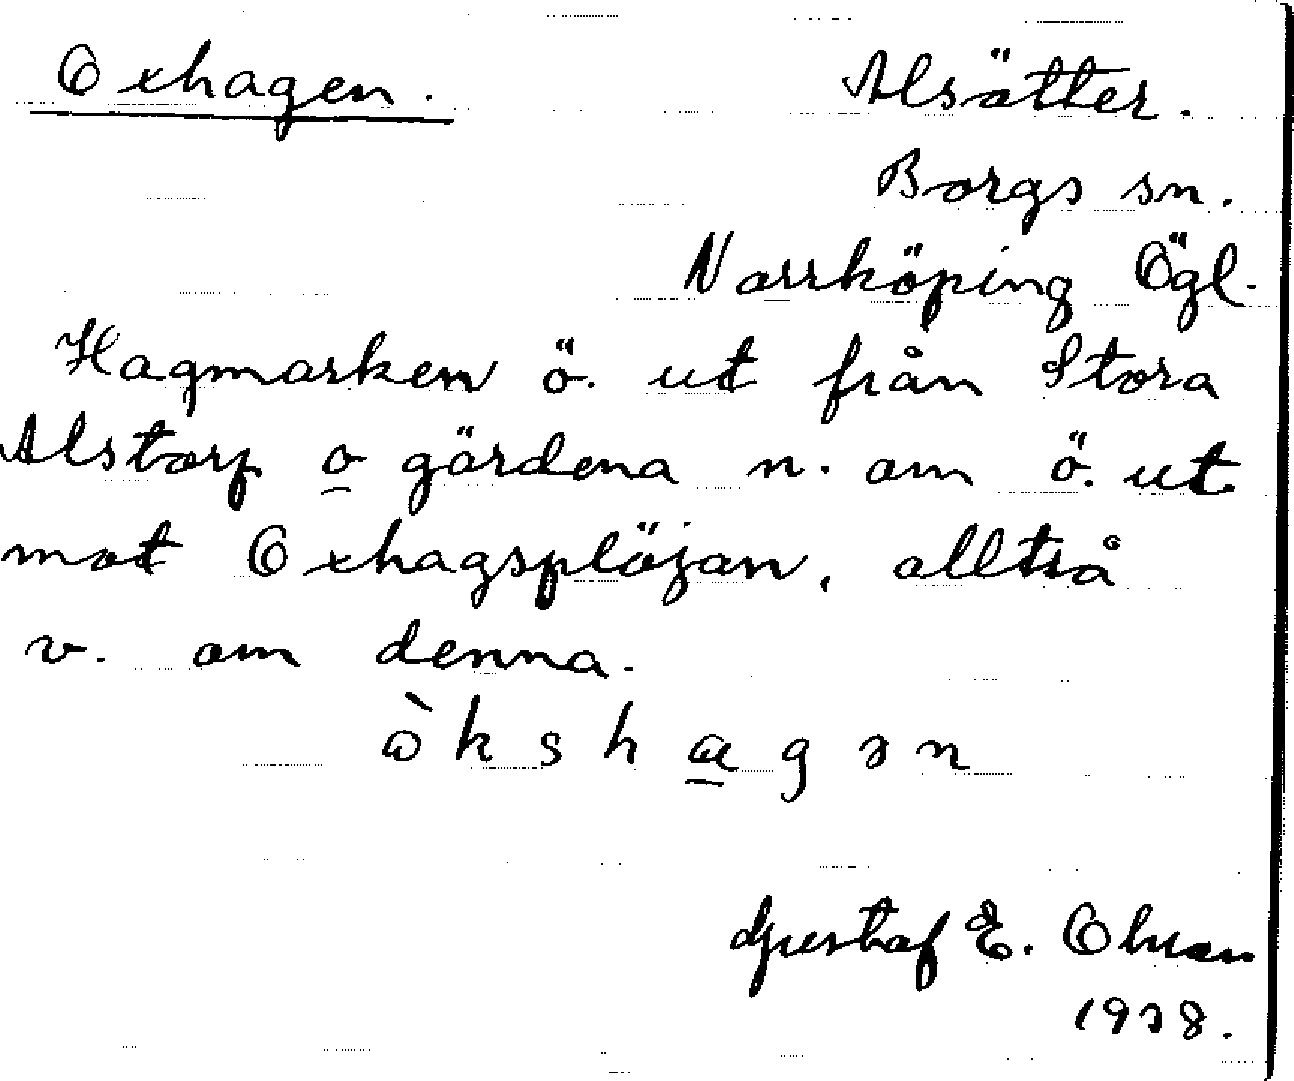 Oxhagen. Alsätter.
Borgs sn.
Norrköping Ögl.
Hagmarken ö. ut från Stora
Alstorp o gärdena n. om ö. ut
mot Oxhagsplöjan, alltså
v. om denna.
ò k s h a g ə n
Gustaf E.
1938.